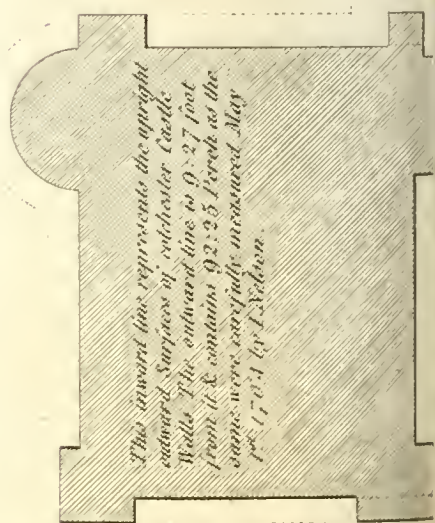 This inward line represents the upright
outward Surfaces of colchester Castle
Walls The outward line is 9.27 foot
from it & contains 92.25 Perch as the
same were carefully measured May
by I. Nelson.